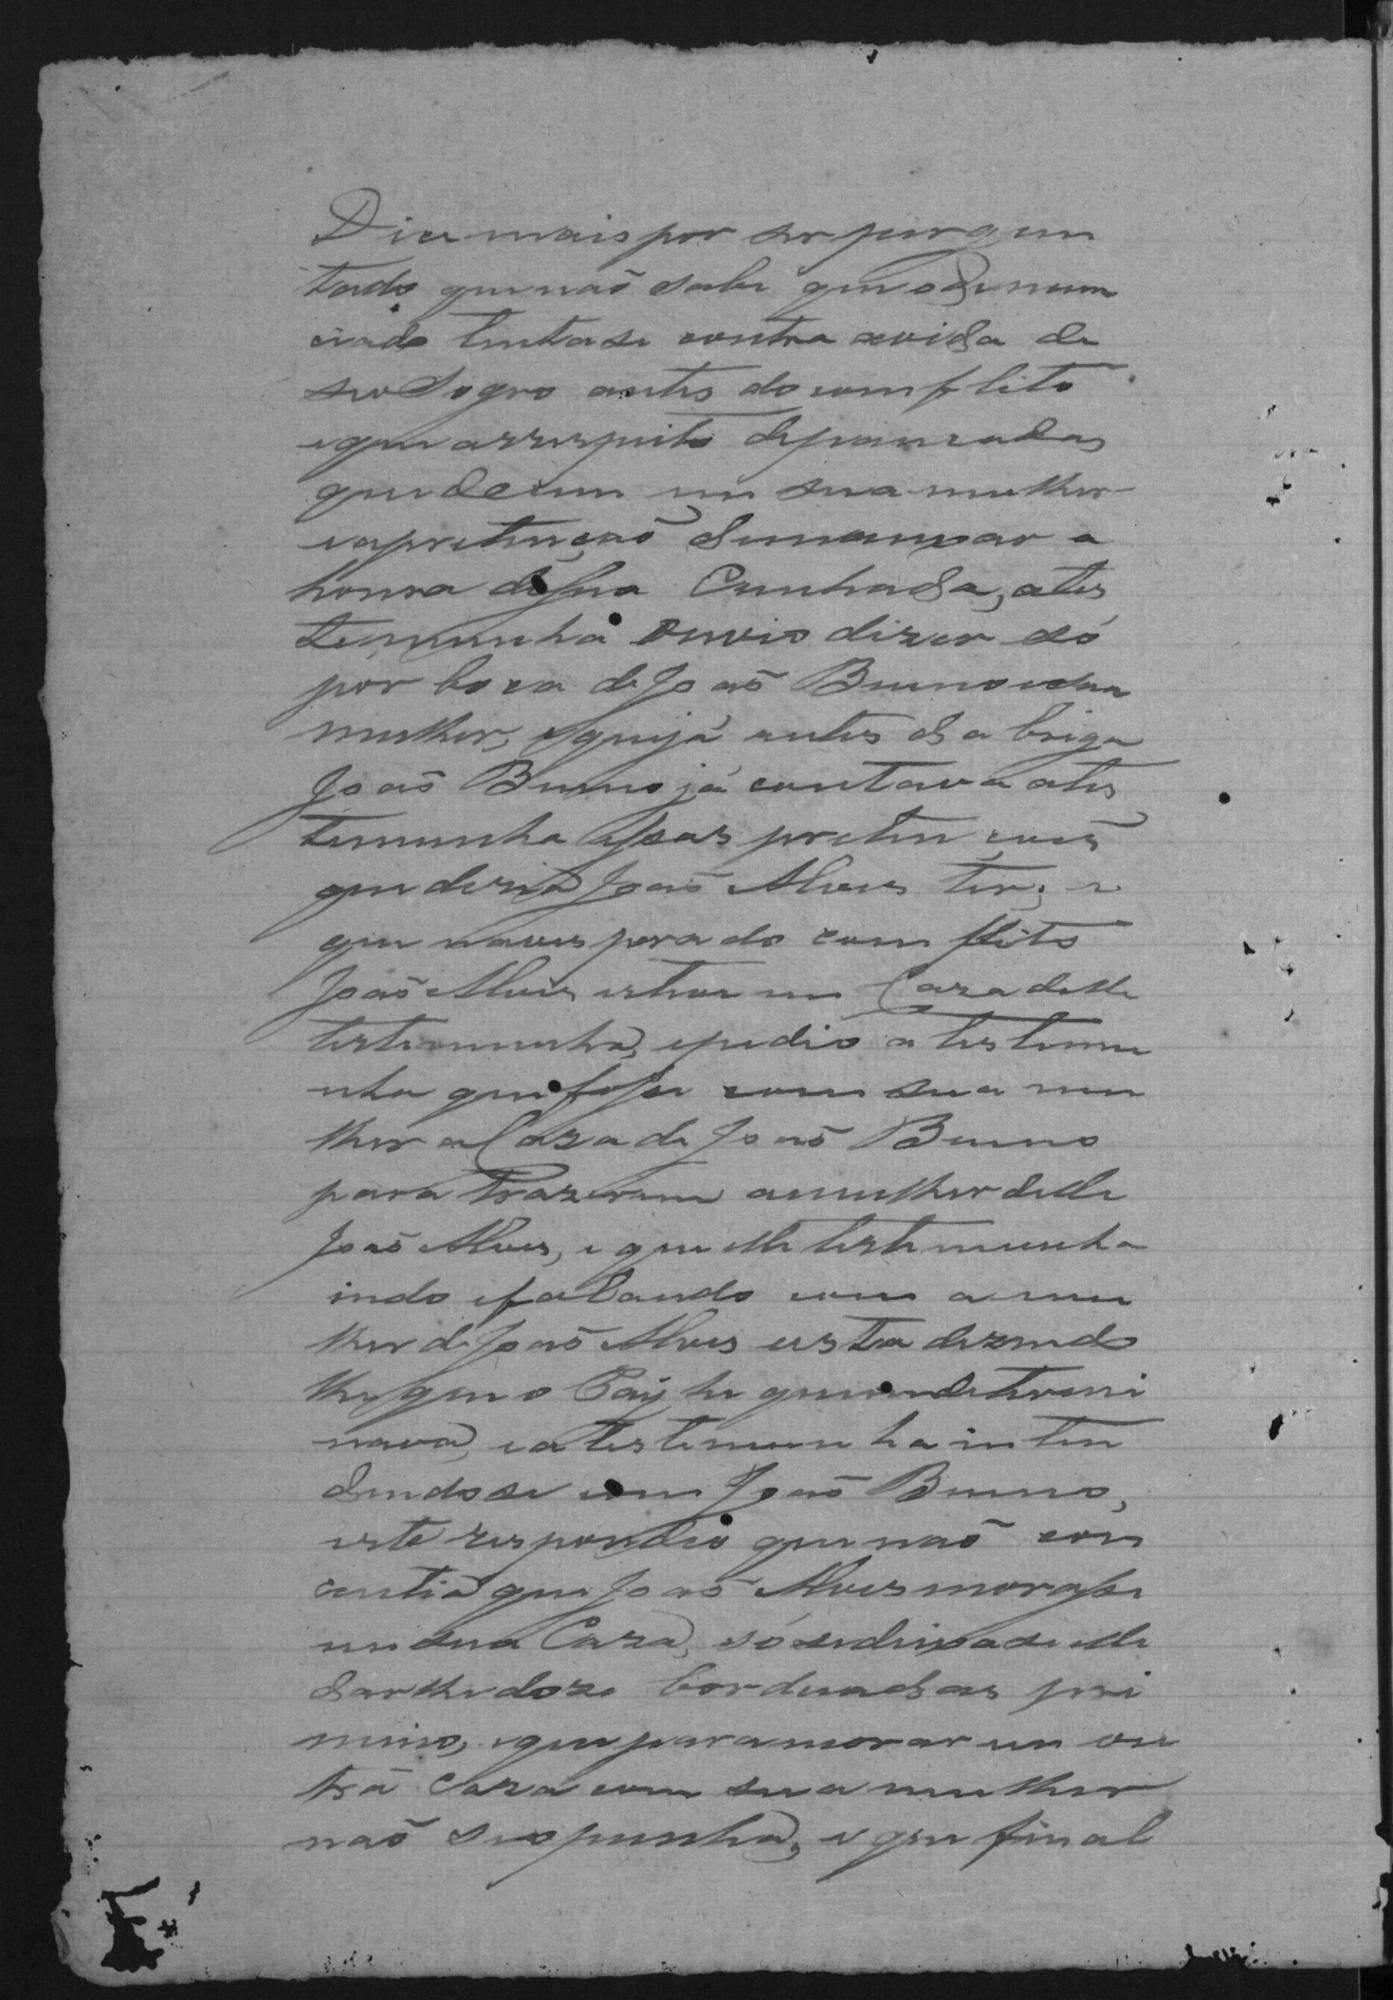 Dice mais por ser pergun
tado que não sabe que o denun
ciado tentase contra avida de
seo Sogro antes do comflito
eque arrespeito depancadas
que deu em sua mulher
eapretenção de manxar a
honra de sua Cunhada, ates
temunha ouvio dizer só
por boca de João Bueno esua
mulher, eque já antes da briga
João Bueno já contava ates
temunha essas pretencoẽs
que dezia João Alves ter, e
que naves pera do comflito
João Alves esteve em Caza delle
testemunha, epedio a testemu
nha que fosse com sua mu
lher a Caza de João Bueno
para trazerem amulher delle
João Alves, e que elle testemunha
indo efalando com a mu
lher de João Alves esta dizendo
lhe que o Pay he quem detremi
nava, e a testemunha inten
dendose com João Bueno,
este respondeo que não con
centia que João Alves morasse
em sua Caza, só sedeixase elle
darlhe doze borduadas pri
meiro, eque para morar em ou
tra Caza com sua mulher
não seopunha, e que final